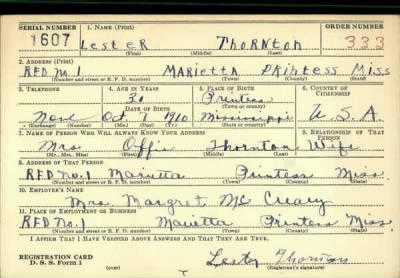 SERIAL NUMBER 1. NAME (Print) ORDER NUMBER
1607 LESTER THORNTON 333
(First) (Middle) (Last)
2. ADDRESS (Print)
RFD No. 1 MARIETTA PRINTESS MISS
(Number and street or R. F. D. number) (Town) (County) (State)
3. TELEPHONE 4. AGE IN YEARS 5. PLACE OF BIRTH 6. COUNTRY OF CITIZENSHIP
30 Printess
(Town or county)
DATE OF BIRTH
None Oct. 7 1910 Mississippi U.S.A.
(Exchange) (Number) (Mo.) (Day) (Yr.) (State or country)
7. NAME OF PERSON WHO WILL ALWAYS KNOW YOUR ADDRESS 8. RELATIONSHIP OF THAT PERSON
Mrs Offie Thornton Wife
(Mr., Mrs., Miss) (First) (Middle) (Last)
9. ADDRESS OF THAT PERSON
RFD No. 1 Marietta Printess Miss.
(Number and street or R. F. D. number) (Town) (County) (State)
10. EMPLOYER'S NAME
Mrs. Margret Mc Creary
11. PLACE OF EMPLOYMENT OR BUSINESS
RFD No. 1 Marietta Printess Miss.
(Number and street or R. F. D. number) (Town) (County) (State)
I AFFIRM THAT I HAVE VERIFIED ABOVE ANSWERS AND THAT THEY ARE TRUE.
REGISTRATION CARD
D. S. S. Form 1 (over) Lester Thornton
(Registrant's signature)